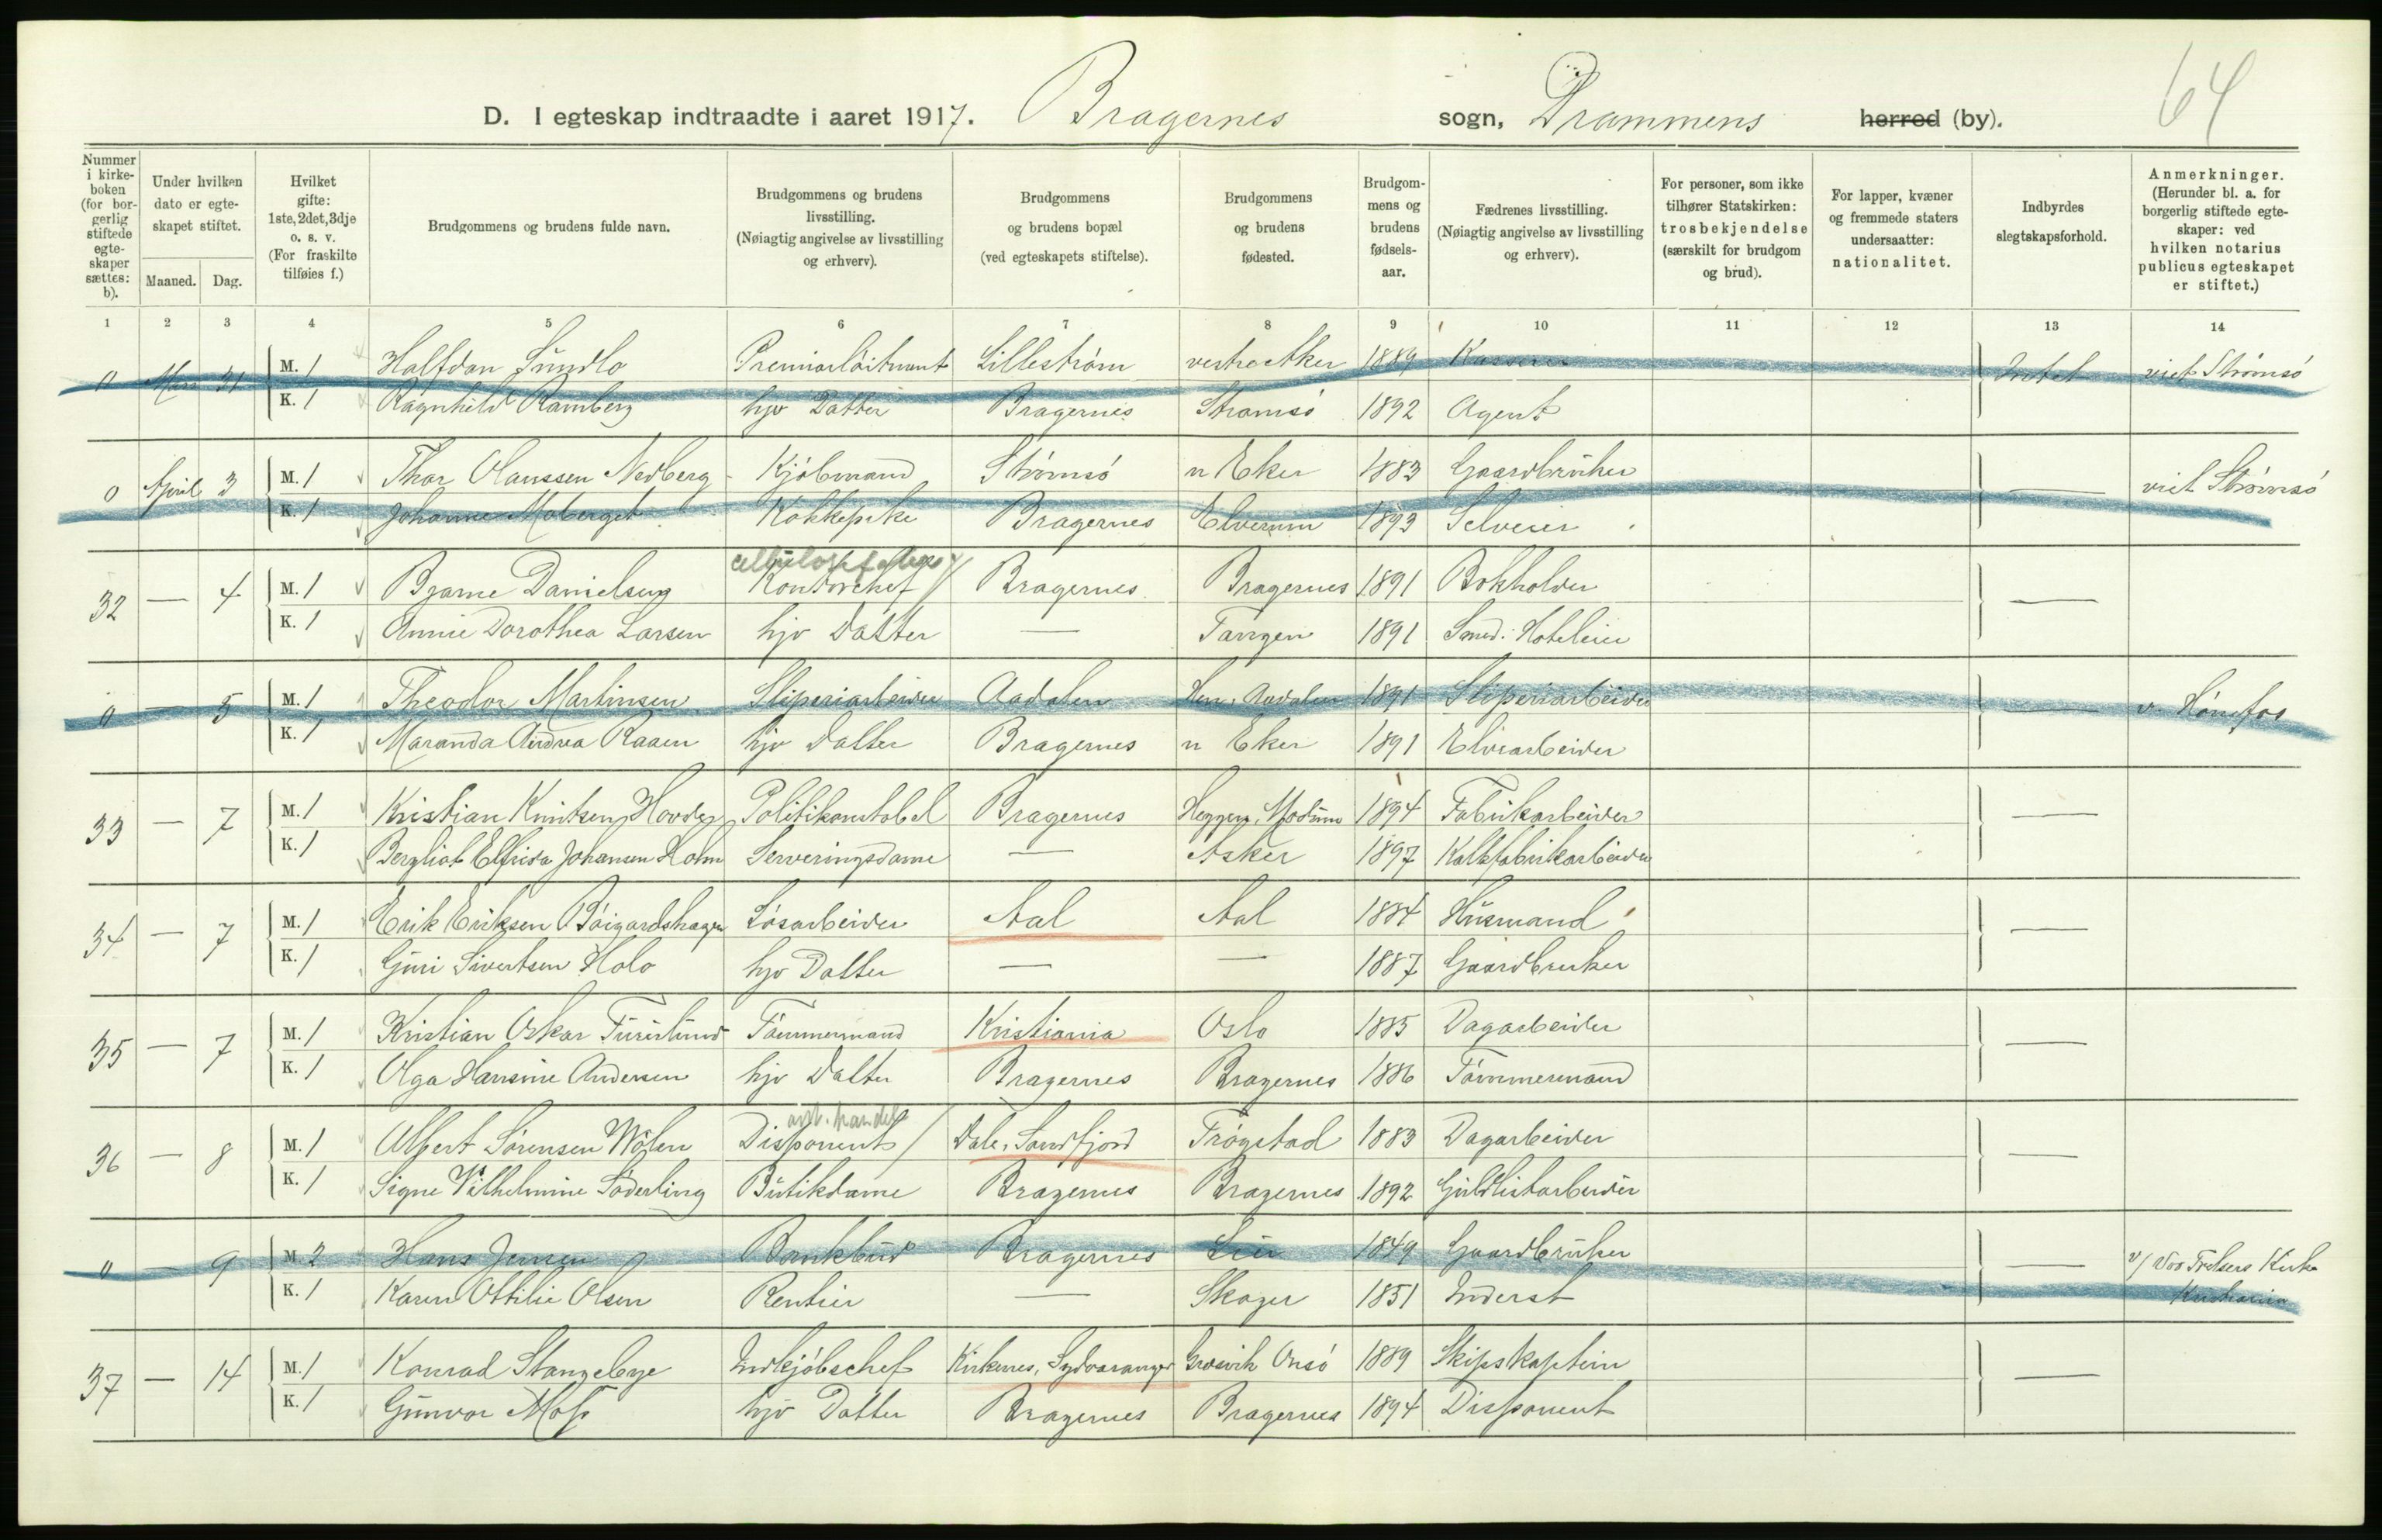 64
D. I egteskap indtraadte i aaret 1917. Bragernes sogn, Drammens herred (by).
Nummer i kirkeboken (for borgerlig stiftede egteskaper sættes: b).
Under hvilken dato er egteskapet stiftet.
Maaned. Dag.
Hvilket gifte: 1ste, 2det, 3dje o. s. v. (For fraskilte tilføies f.)
Brudgommens og brudens fulde navn.
Brudgommens og brudens livsstilling. (Nøiagtig angivelse av livsstilling og erhverv).
Brudgommens og brudens bopæl (ved egteskapets stiftelse).
Brudgommens og brudens fødested.
Brudgommens og brudens fødselsaar.
Fædrenes livsstilling. (Nøiagtig angivelse av livsstilling og erhverv).
For personer, som ikke tilhører Statskirken: trosbekjendelse (særskilt for brudgom og brud).
For lapper, kvæner og fremmede staters undersaatter: nationalitet.
Indbyrdes slegtskapsforhold.
Anmerkninger. (Herunder bl. a. for borgerlig stiftede egteskaper: ved hvilken notarius publicus egteskapet er stiftet.)
1 2 3 4 5 6 7 8 9 10 11 12 13 14
0 Mars 31 M. 1 Halfdan Sundlo Premierløitnant Lillestrøm vestre Aker 1889 Kasserer Intet viet Strømsø
K. 1 Ragnhild Ramberg hjv Datter Bragernes Strømsø 1892 Agent
0 April 3 M. 1 Thor Olaussen Nedberg Kjøbmand Strømsø n Eker 1883 Gaardbruker — viet Strømsø
K. 1 Johanne Moberget Kokkepike Bragernes Elverum 1893 Selveier
cellulosef
32 — 4 M. 1 Bjarne Danielsen Kontorchef Bragernes Bragernes 1891 Bokholder —
K. 1 Annie Dorothea Larsen hjv Datter — Tangen 1891 Smed: Hoteleier
0 — 5 M. 1 Theodor Martinsen Sliperiarbeider Aadalen Hen, Aadalen 1891 Sliperiarbeider — v. Hønefos
K. 1 Maranda Andrea Raaen hjv Datter Bragernes n Eker 1891 Elvearbeider
33 — 7 M. 1 Kristian Knutsen Hovde Politikonstabel Bragernes Heggen, Modum 1894 Fabrikarbeider —
K. 1 Bergliot Elfrida Johansen Holm Serveringsdame — Asker 1897 Kalkfabrikarbeider
34 — 7 M. 1 Erik Eriksen Bøigardshagen Løsarbeider Aal Aal 1884 Husmand —
K. 1 Guri Sivertsen Holo hjv Datter — — 1887 Gaardbruker
35 — 7 M. 1 Kristian Oskar Furulund Tømmermand Kristiania Oslo 1885 Dagarbeider —
K. 1 Olga Hansine Andersen hjv Datter Bragernes Bragernes 1886 Tømmermand
handel
36 — 8 M. 1 Albert Sørensen Mølen Disponent Dale, Sandfjord Trøgstad 1883 Dagarbeider —
K. 1 Signe Vilhelmine Søderling Butikdame Bragernes Bragernes 1892 Guldlistarbeider
0 — 9 M. 2 Hans Jensen Bankbud Bragernes Lier 1849 Gaardbruker — v/ Vor Frelsers Kirke
K. 1 Karen Ottilie Olsen Rentier — Skoger 1851 Inderst Kristiania
37 — 14 M. 1 Konrad Stangebye Indkjøbschef Kirkenes, Sydvaranger Onsø 1889 Skipskaptein —
K. 1 Gunvor Moss hjv Datter Bragernes Bragernes 1894 Disponent